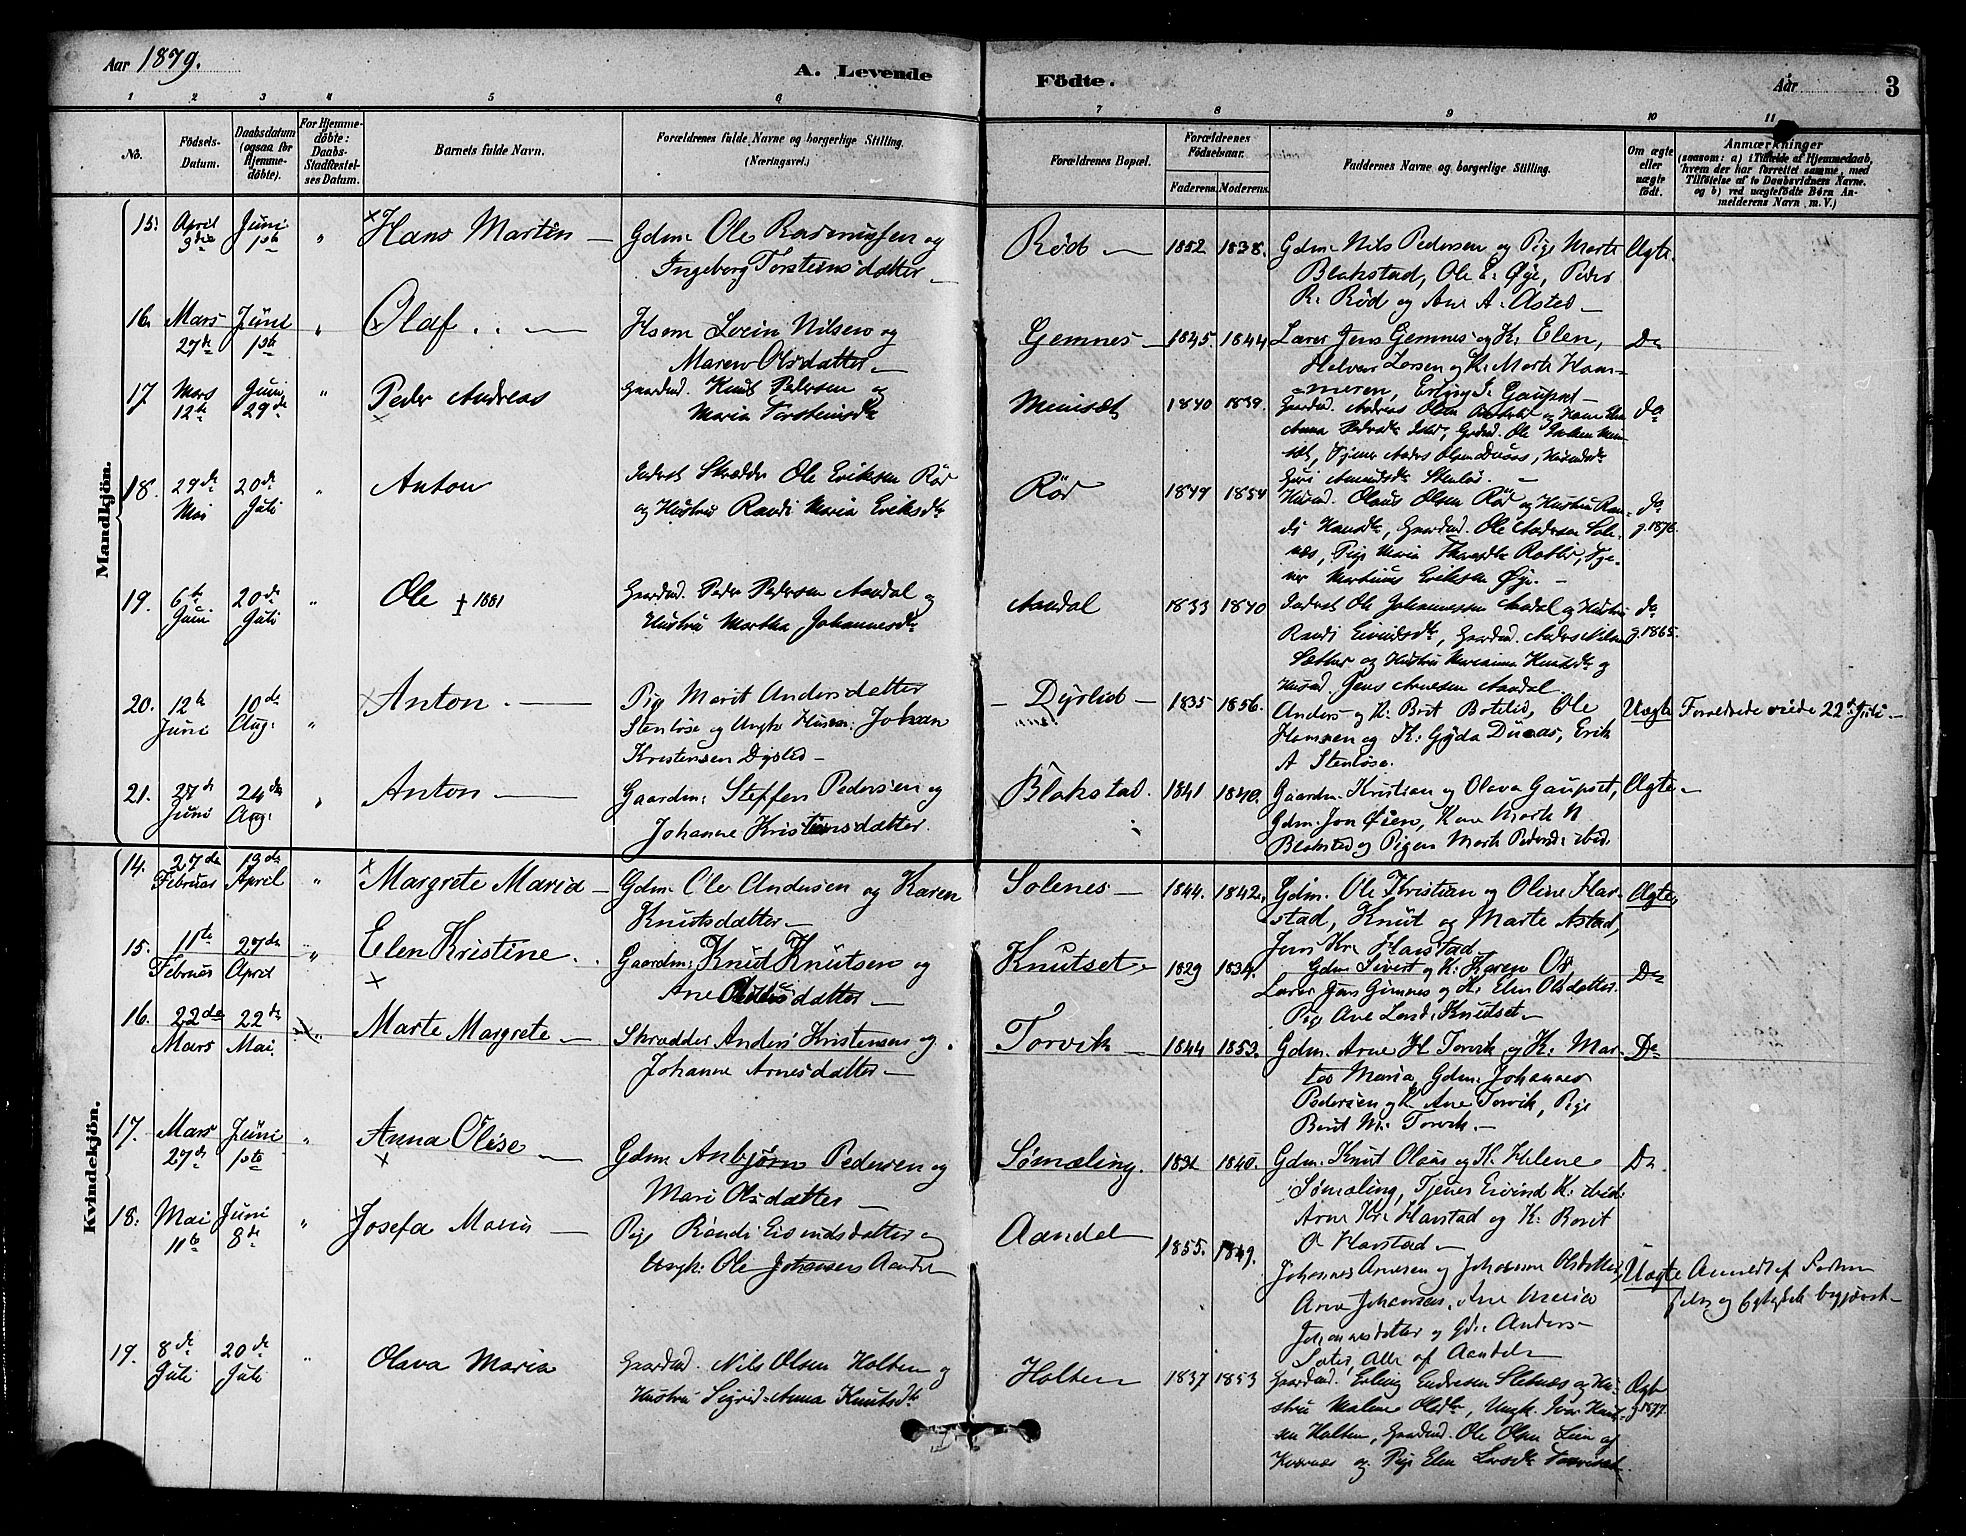 Aar 1879.
A. Levende
Födte.
Aar
3
1 2 3 4 5 6 7 8 9 10 11
No.
Födsels-
Datum.
Daabsdatum
(ogsaa for
Hjemme-
döbte).
For Hjemme-
döbte:
Daabs-
Stadfæstel-
ses Datum.
Barnets fulde Navn.
Forældrenes fulde Navne og borgerlige Stilling.
(Næringsvei.)
Forældrenes Bopæl.
Forældrenes
Födselsaar.
Faderens. Moderens.
Faddernes Navne og borgerlige Stilling.
Om ægte
eller
uægte
födt.
Anmærkninger
(saasom: a) i Tilfælde af Hjemmedaab,
hvem der har forrettet samme, med
Tilföielse af to Daabsvidners Navne.
og b) ved uægtefödte Börn An-
melderens Navn m. V.)
Mandkjön.
15. April 9de Juni 1ste " × Hans Martin — Gdm. Ole Rasmussen og
Ingeborg Torsteinsdatter —
Röd — 1852 1838. Gdm. Nils Pedersen og Pige Marte
Blakstad, Ole E. Øye, Peder
R. Röd og Ane A. Asted —
Ægte.
16. Mars 27de Juni 1ste " × Olaf . . — Hsm. Svein Nilsen og
Maren Olsdatter —
Gemnes — 1845. 1844 Lærer Jens Gemnes og K. Elen,
Halvor Larsen og K. Marte Ham-
meren, Erling I. Gaupset —
Do
17 Mars 12te Juni 29de " Peder Andreas × Gaardmd. Knut Pedersen og
Maria Torsteinsdtr
Meisæt 1840 1839. Gaardmd. Andreas Olsen
do
18. 29de Mai 20de Juli " Anton Inderst Skrædder Ole Eriksen Röd
og Hustru Randi Maria Eriksdtr
Röd 1849 1854 Husmd. Olaus Olsen Röd og Hustru Ran-
di Hansdtr, Gaardmd. Ole Andersen Sole-
næs, Pige Maria
Martinus Eriksen Øye. —
do
g. 1876.
19. 6te Juni 20de Juli " Ole † 1881 Gaardmd. Peder Pedersen Aandal og
Hustru Martha Johannesdtr
Aandal 1833 1840 Inderst Ole Johannessen Aandal og Hustru
Randi Eivindsdtr, Gaardmd. Anders Nilsen
Sætter og Hustru Marianna Knutsdtr og
Husmd. Jens Arnesen Aandal.
do
g. 1865.
20. 12te Juni 10de Aug. " × Anton. — Pige Marit Andersdatter
Stenlöse og Ungk. Husm. Johan
Kristensen Dyslid —
— Dyrlid — 1835 1856. Anders og K. Brit Botslid, Ole
Hansen og K. Gjøda Duaas, Erik
A Stenlöse.
Uægte Forældrede viede 22de Juli —
21. 27de Juni 24de Aug. " Anton — Gaardm: Steffen Pedersen og
Johanne Kristensdatter.
Blakstad. 1841 1840. Gaardm. Kristian og Olava Gaupset,
Gdm. Jon Øien, Kone Marte N
Blakstad og Pigen Marte Pedersd. ibid.
Ægte —
Kvindekjön.
14. 27de Februar 13de April " × Margrete Maria — Gdm. Ole Andersen og Karen
Knutsdatter —
Solenes — 1844. 1842. Gdm. Ole Kristian og Oline Har-
stad, Knut og Marte Astad,
Jens Kr. Harstad
Ægte
15. 11te Februar 27de April " Elen Kristine . . × Gaardm: Knud Knutsen og
Ane datter —
Knutset — 1829 1834. Gdm. Sivert og K. Karen Os
Lærer Jens Gimnes og K. Elen Olsdatter.
Pige Ane Knutset —
Do
16. 22de Mars 22de Mai Marte Margrete — Skrædder Anders Kristensen og
Johanne Arnesdatter —
Torvik — 1844 1853. Gdm. Arne H Torvik og K. Mar-
Maria, Gdm. Johannes
Pedersen og K Ane Torvik, Pige
Berit M. Torvik. —
Do
17. Mars 27de Juni 1ste " Anna Olise × — Gdm Anbjørn Pedersen og
Mari Olsdatter —
Sømæling. 1831 1840. Gdm. Knut Olaus og K. Helene
Sømæling, Tjener Eivind K. ibid.
Arne Kr. Harstad og K. Berit
O Harstad —
Do
18. Mai 11te Juni 8de " Josefa Maria — Pige Randi Eivindsdatter og
Ungk: Ole Johansen Aandal
Aandal 1855. 1849. Johannes Arnesen og Johanne Olsdatter,
Arne Johansen, Ane Maria
Johannesdatter og Gdm. Anders
Sæter, Alle af Aandalen
Uægte Anmeldt af Faderen
selv og
19. 8de Juli 20de Juli " Olava Maria Gaardmd. Nils Olsen Holten og
Hustru Sigrid Anna Knutsdtr
Holten 1837 1853 Gaardmd. Erling Endresen Sletnæs og Hu-
stru Malene Olsdtr, Ungk. Ivar Knut-
sen Holten, Gaardmd. Ole Olsen Lien af
Kvernæs og Pige Elen Larsdtr
Ægte
g. 1877.